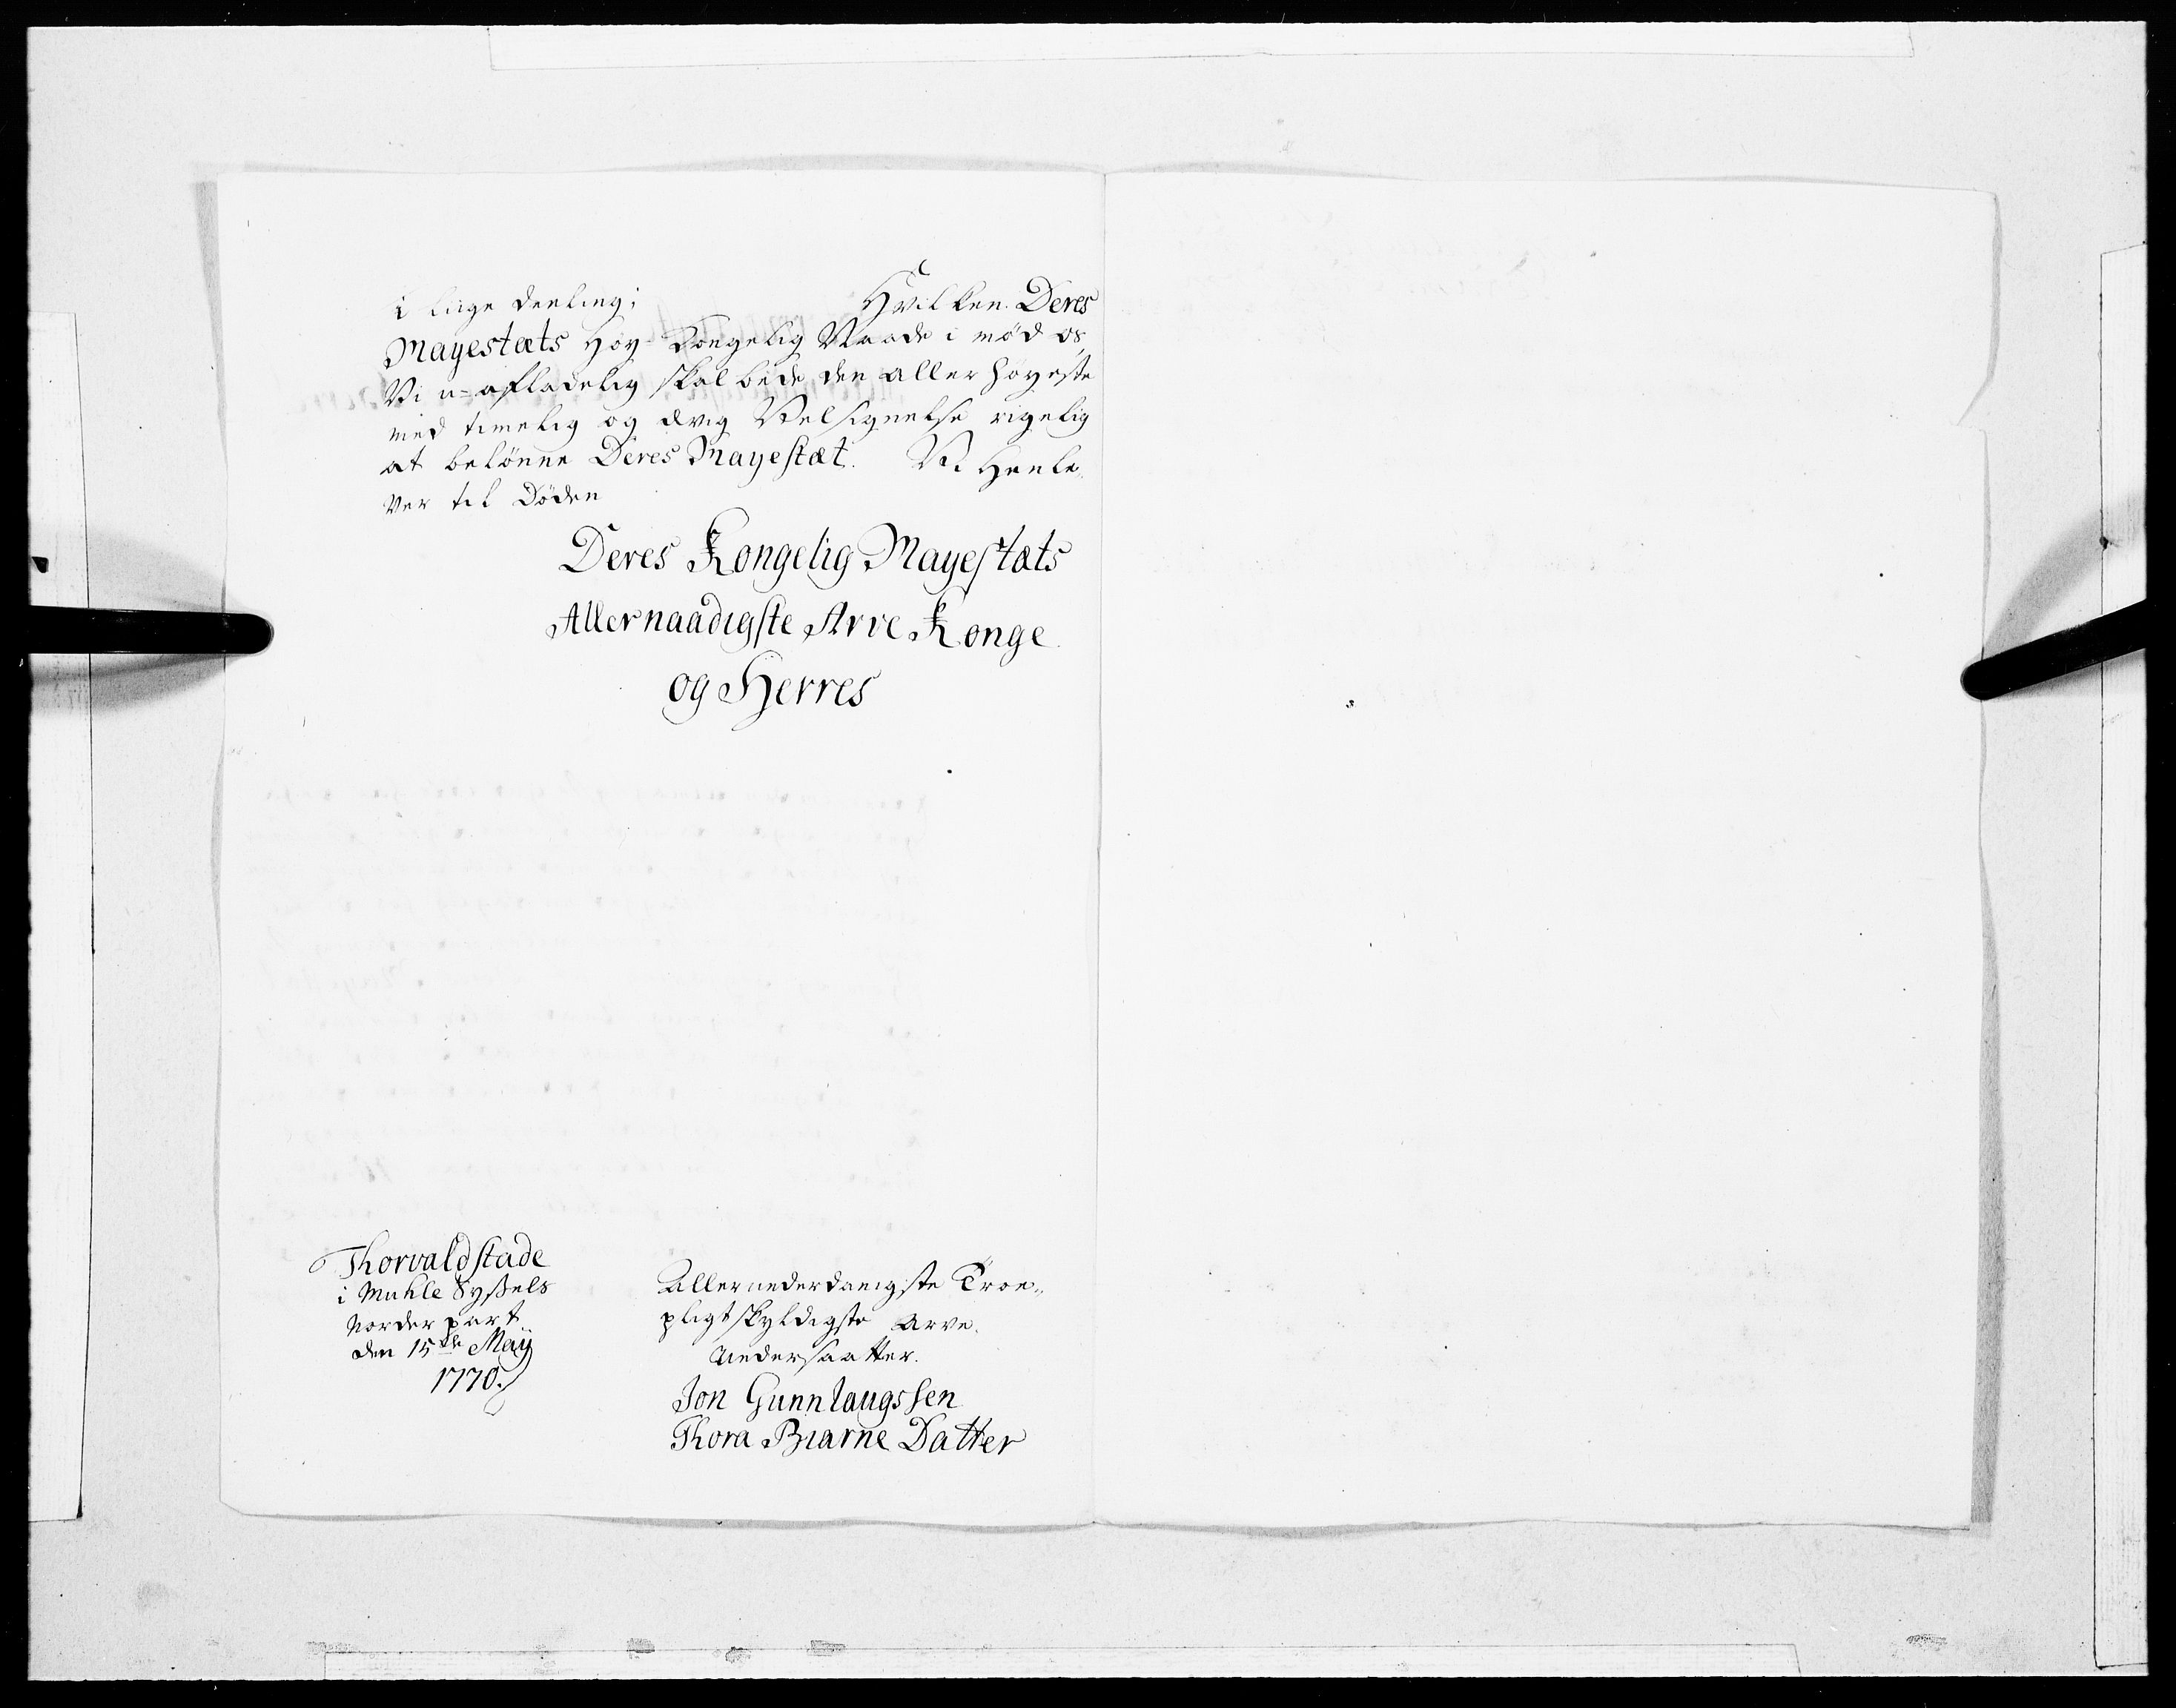 i liige deeling; Hvilken Deres
Mayestæts Høy-Kongelig Naade i mod os
Vi u=afladelig skal bede den allerhøyeste
med timelig og ævig Velsignelse rigelig
at belønne Deres Mayestæt. Vi Henle„
ver til Døden
Deres Kongelig Mayestæts
Allernaadigste Arve Konge
og Herres
Thorvaldstade
i Muhle Syssels
Norder part
den 15de Maÿ
1770.
Allerunderdanigste Troe„
pligtskyldigste Arve
Undersaatter.
Jon Gunnlaugssen
Thora Biarne Datter